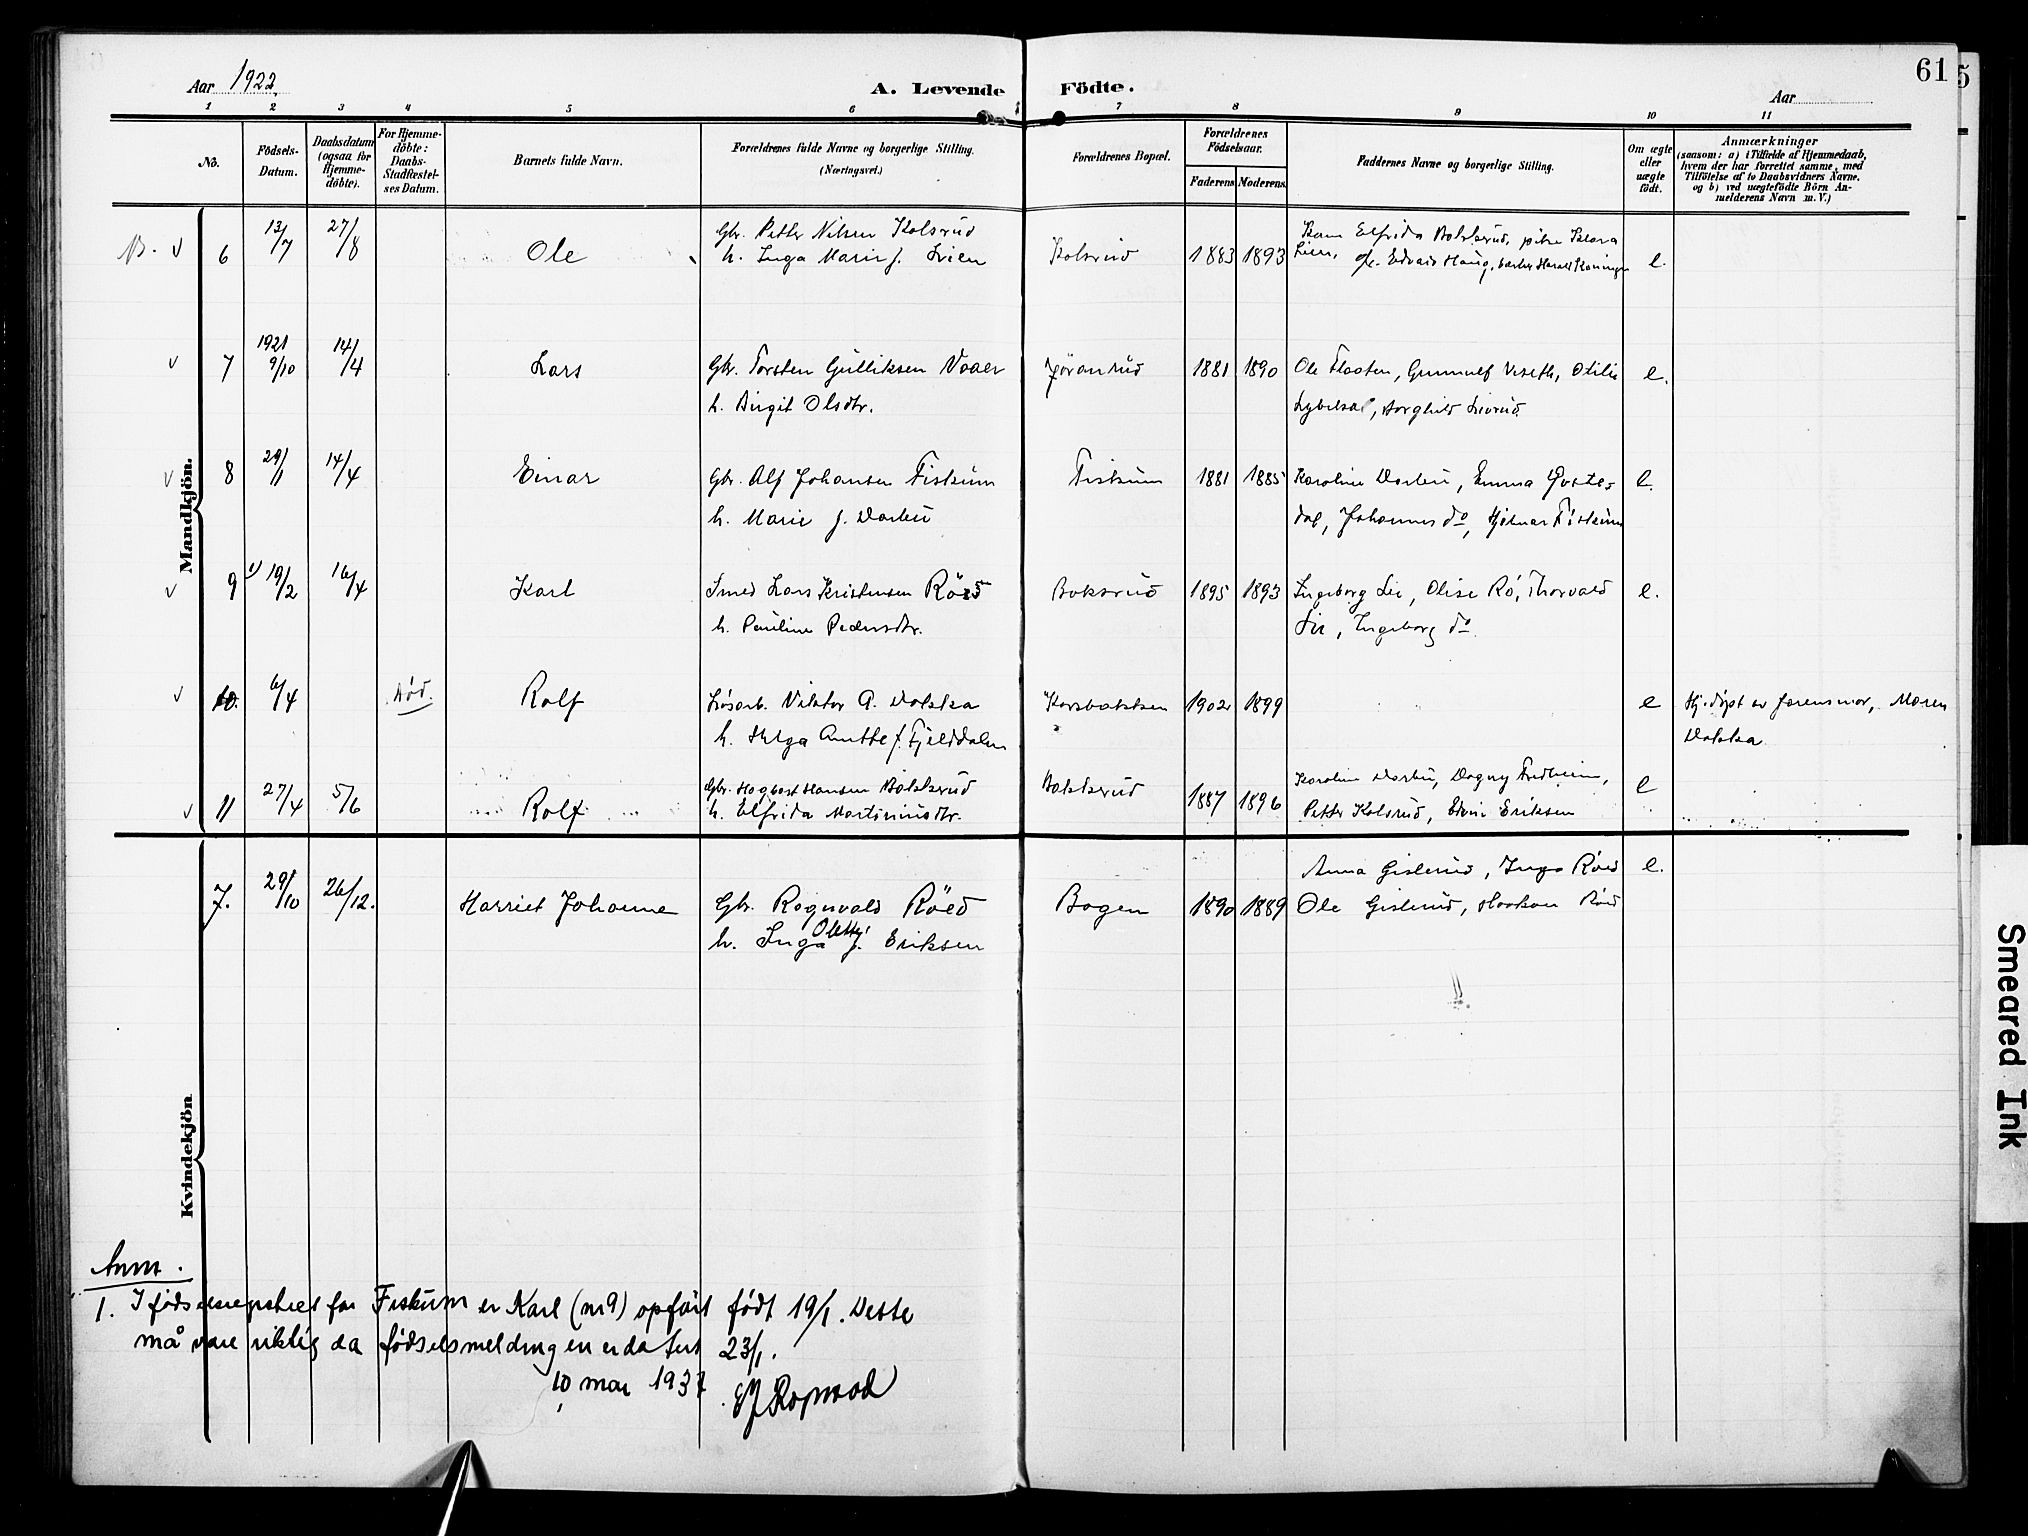 61
5
Aar 1922.
A. Levende Födte.
Aar
1 2 3 4 5 6 7 8 9 10 11
No.
Födsels-Datum.
Daabsdatum (ogsaa for Hjemme-döbte).
For Hjemme-döbte: Daabs-Stadfæstel-ses Datum.
Barnets fulde Navn.
Forældrenes fulde Navne og borgerlige Stilling.
(Næringsvei.)
Forældrenes Bopæl.
Forældrenes Födselsaar.
Faderens Moderens
Faddernes Navne og borgerlige Stilling.
Om ægte eller uægte født.
Anmærkninger
(saasom: a) i Tilfælde af Hjemmedaab,
hvem der har forrettet samme, med
Tilföielse af to Daabsvidners Navne,
og b) ved uægtefödte Börn An-
melderens Navn m. V.)
Mandkjön.
6 13/7 27/8 Ole Gbr. Petter Nilsen Kolsrud Kolsrud 1883 1893 Elfrida Bakkerud, pike Klara e.
h. Inga Marie f. Lien Lien, Edvard Haug, Harald
7 1921 9/10 14/4 Lars Gbr. Torsten Gulliksen Vaaer Jøranrud 1881 1890 Ole Flaaten, Gunnulf Veseth, Otilie e.
h. Birgit Olsdtr. Borghild
8 29/1 14/4 Einar Gbr. Alf Johansen Fiskum Fiskum 1881 1885 Karoline Darbu, Emma e.
h. Marie f. Darbu dal, Johannes do, Hjalmar Fiskum
9 1) 19/2 16/4 Karl Smed Lars Kristensen Röed Baksrud 1895 1893 Ingeborg Lie, Olise Rö, Thorvald e.
h. Pauline Pedersdtr. Lie, Ingeborg do
10. 6/4 Död. Rolf Løsarb. Viktor A. Dokka Korsbakken 1902 1899 e Hj.døpt av farens mor, Maren
h. Helga Anette f. Fjelddalen Dokka
11 27/4 5/6 Rolf Gbr. Hagbart Hansen Bakkerud Bakkerud 1887 1896 Karoline Darbu, Dagny Fredheim, e
h. Elfrida Martiniusdtr. Petter Kolsrud, Edvin Eriksen
Kvindekjön
7. 29/10 26/12. Harriet Johanne Gbr. Ragnvald Röed Bogen 1890 1889 Anna Gislerud, Inga Röed e.
h. Inga Olette f. Eriksen Ole Gislerud, Haakon Röed
Anm.
1. I fødselsregistret for Fiskum er Karl (nr 9) opført født 19/1. Dette
må være riktig da fødselsmeldingen er datert 23/1.
10 mai 1937
Smeared Ink